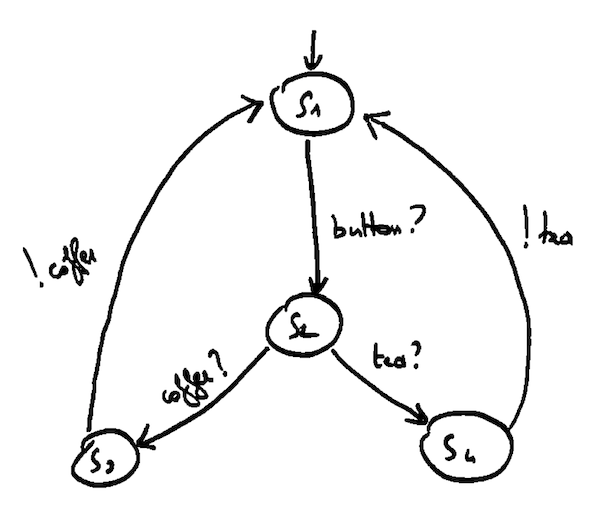 S1
button?
! coffee
! tea
S2
coffee?
tea?
S3
S4